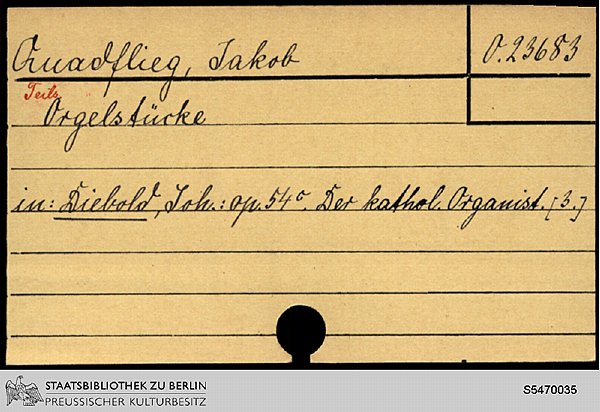 Quadflieg, Jakob
O. 23683
Teils
Orgelstücke
in: Diebold, Joh.: op. 54c. Der kathol. Organist. [3.]
STAATSBIBLIOTHEK ZU BERLIN
PREUSSISCHER KULTURBESITZ
S5470035